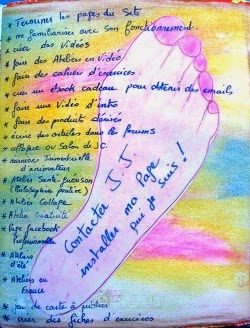 * Terminer les pages du Site
se familiariser avec son fonctionnement.
* créer des Vidéos
* faire des Ateliers en Vidéo
* faire des cahiers d'exercices
* créer un ebook cadeau pour obtenir des emails
* faire une Vidéo d'intro
* faire des produits dérivés
* écrire des articles dans les forums
* colloque ou Salon de J.C.
* réunion Trimestrielle d'animateur
* Atelier Santé-guérison (Philosophie positive)
* Atelier Collage
* Atelier Créativité
* Page facebook Professionnelle
* Ateliers d'été
* Ateliers en France
* jeu de carte à publier
* créer des fiches d'exercices
Contacter J.J.
installer ma Page
que je suis !